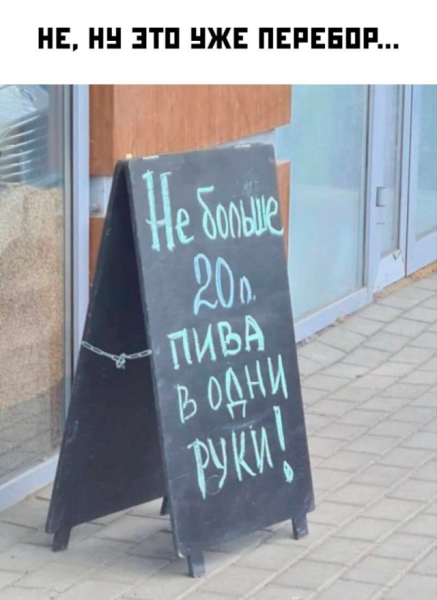 НЕ, НУ ЭТО УЖЕ ПЕРЕБОР...
Не больше
20л.
ПИВА
В ОДНИ
РУКИ!